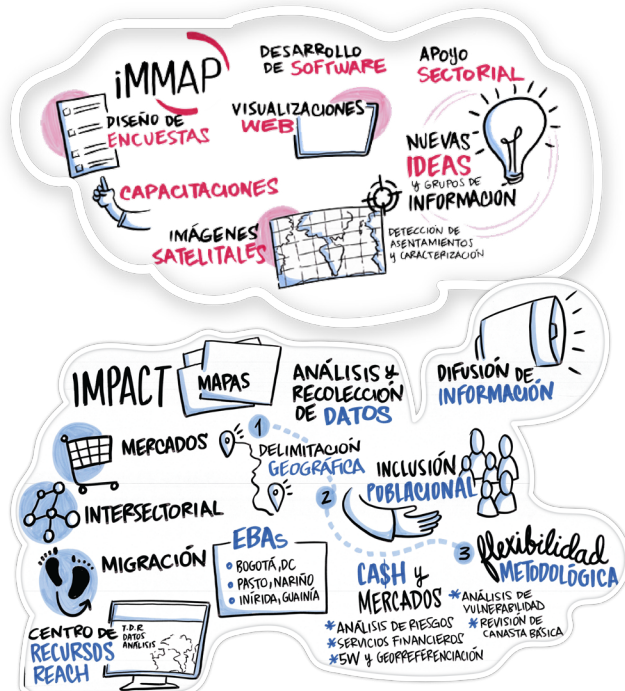 iMMAP
DESARROLLO
DE SOFTWARE
APOYO
SECTORIAL
DISEÑO DE
ENCUESTAS
VISUALIZACIONES
WEB
NUEVAS
IDEAS
Y GRUPOS DE
INFORMACIÓN
CAPACITACIONES
IMÁGENES
SATELITALES
DETECCIÓN DE
ASENTAMIENTOS
Y CARACTERIZACIÓN
IMPACT
MAPAS
ANÁLISIS Y
RECOLECCIÓN
DE DATOS
DIFUSIÓN DE
INFORMACIÓN
MERCADOS
INTERSECTORIAL
MIGRACIÓN
1
DELIMITACIÓN
GEOGRÁFICA
2
INCLUSIÓN
POBLACIONAL
3
flexibilidad
METODOLÓGICA
EBAs
• BOGOTÁ, DC
• PASTO, NARIÑO
• INÍRIDA, GUAINÍA
CA$H y
MERCADOS
*ANÁLISIS DE RIESGOS
*SERVICIOS FINANCIEROS
*5W y GEORREFERENCIACIÓN
*ANÁLISIS DE
VULNERABILIDAD
*REVISIÓN DE
CANASTA BÁSICA
CENTRO DE
RECURSOS
REACH
T.D.R
DATOS
ANÁLISIS